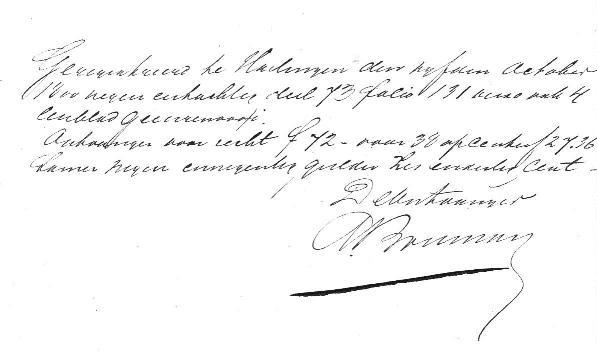 Geregistreerd te Harlingen den vyfden October
1800 negen en tachtig deel 73 folio 131 verso vak 4
een blad geen renvooi.
Ontvangen voor recht f 72 - voor 38 opcenten f 27.36
Samen negen en negentig gulden zes en dertig Cent -
De Ontvanger
Bouman